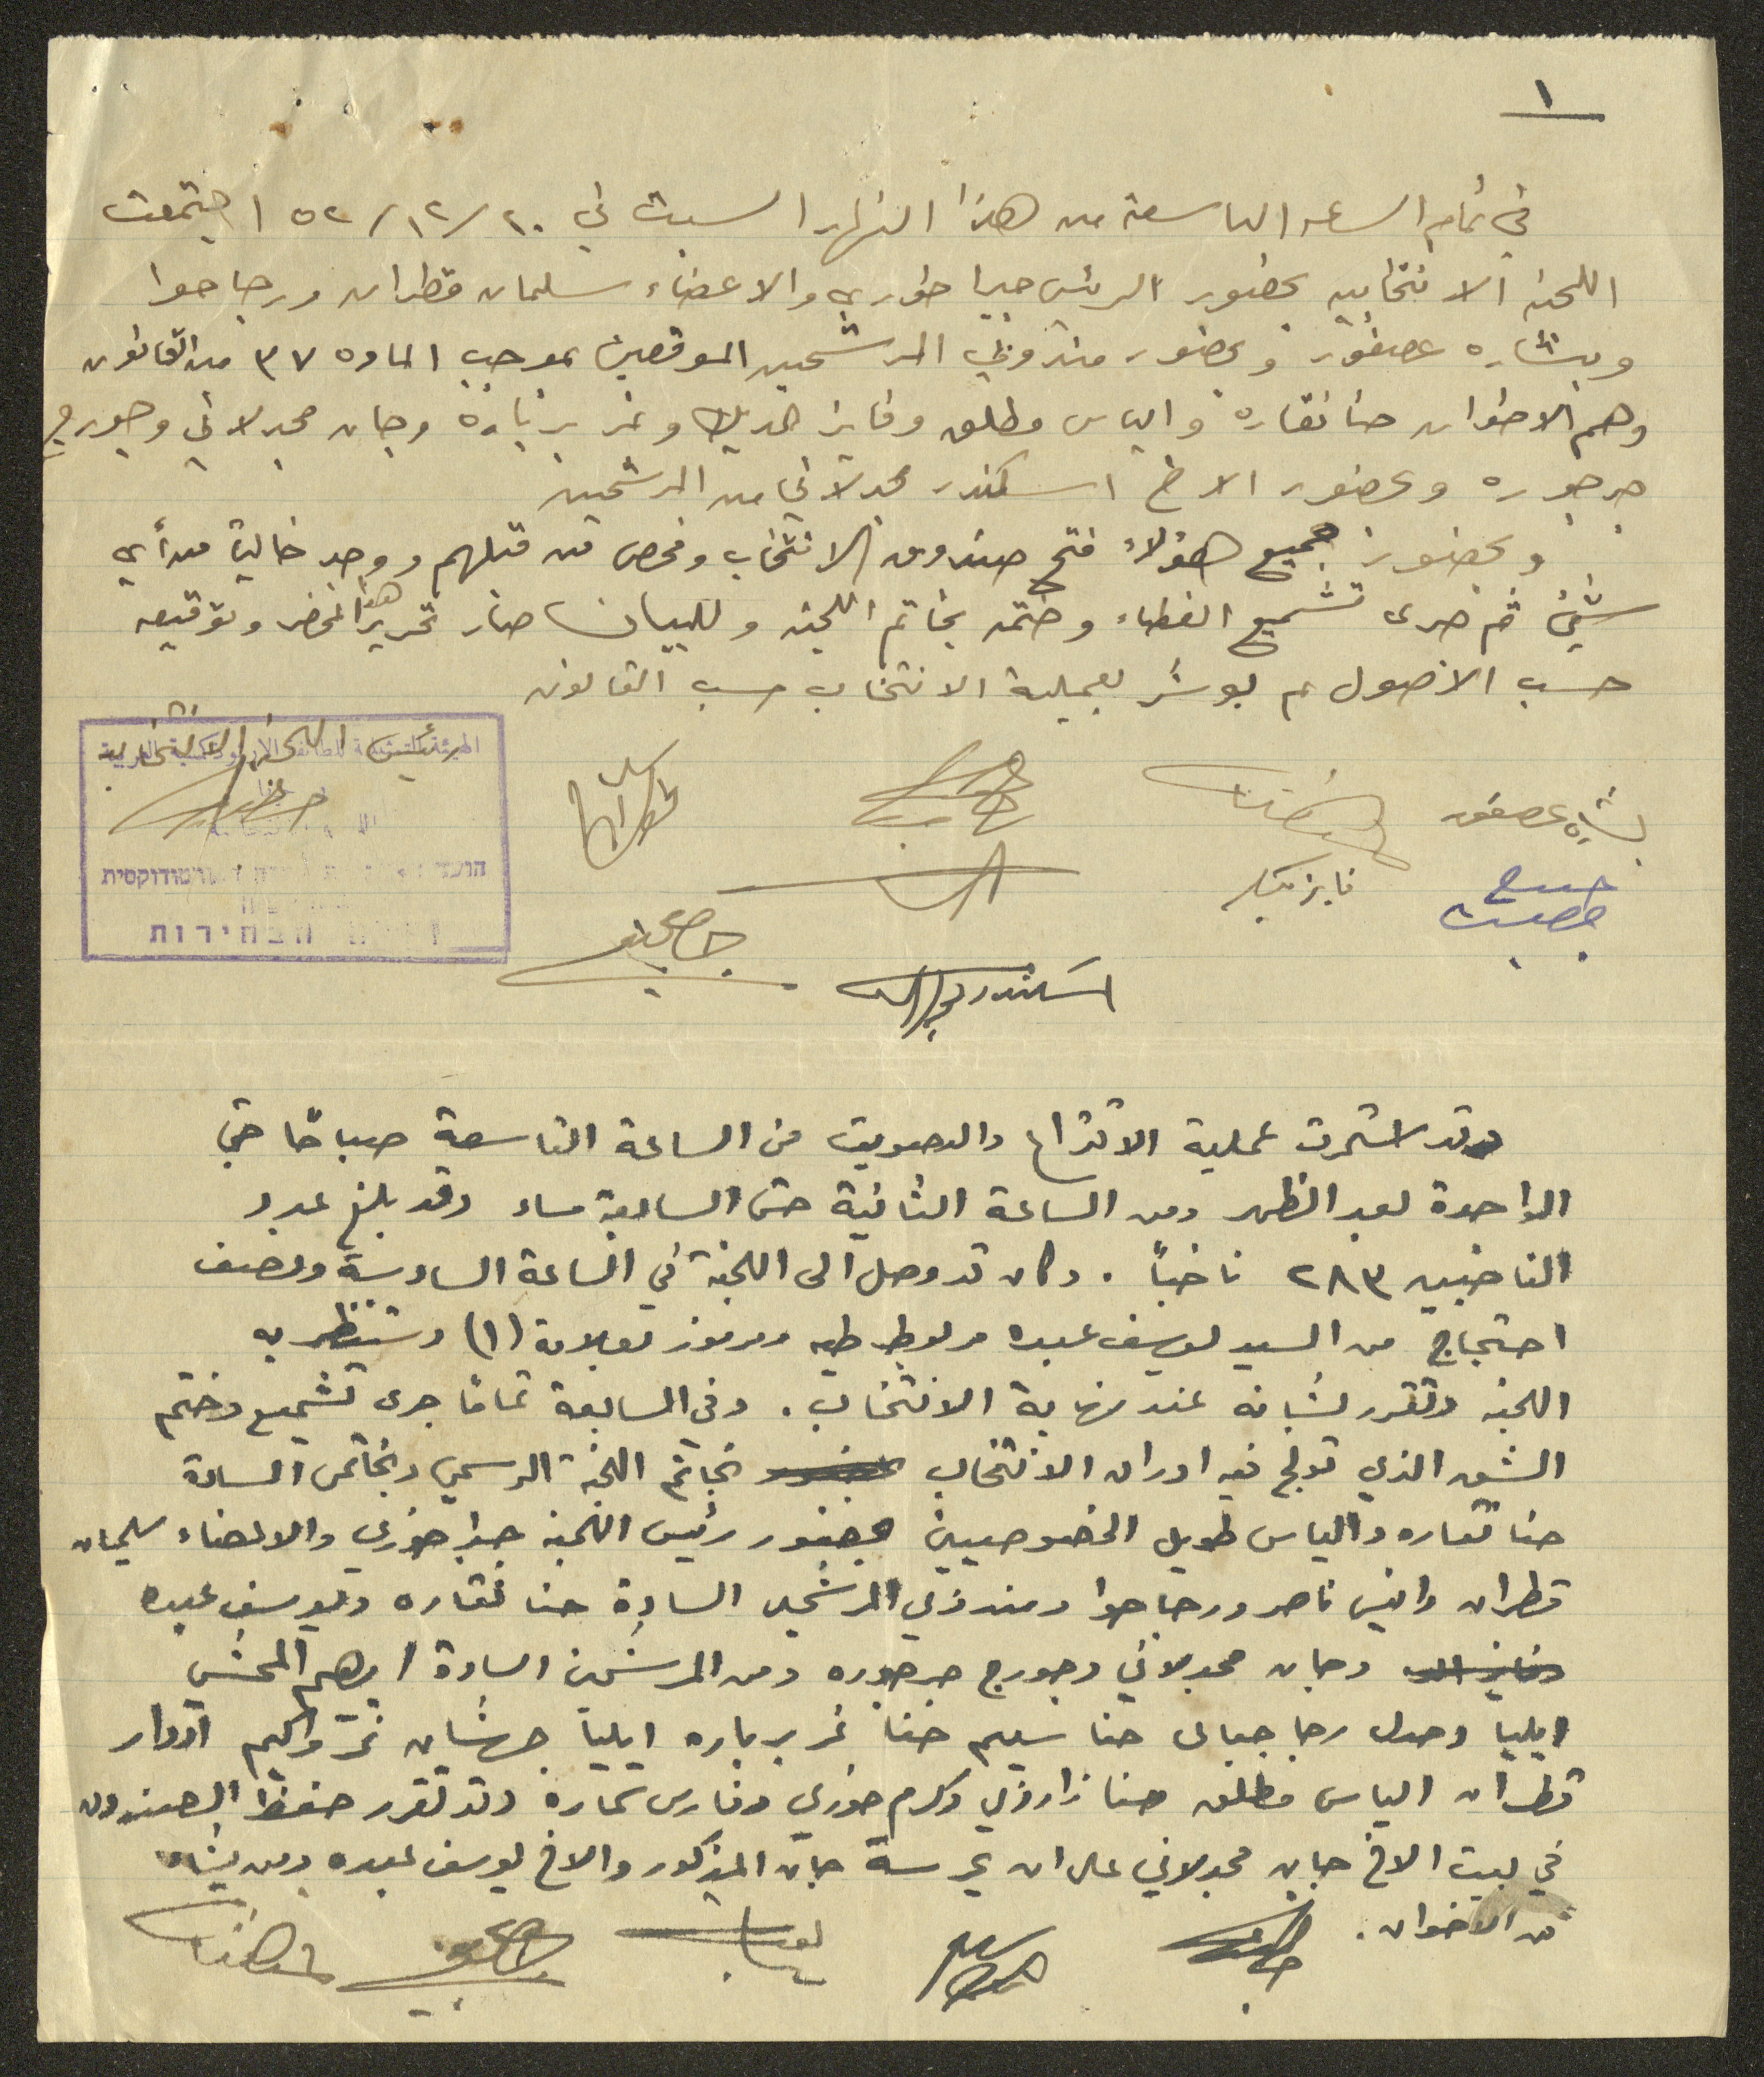 ١
في تمام الساعه التاسعة من هذا النهار السبت في ٢٠/١٢/٥٢ اجتمعت
اللجنه الانتخابيه بحضور الرئيس جبرا خوري والاعضاء سليمان قطران ورجا حوا
وبشاره عصفور وبحضور مندوبي المرشحين الموقعين بموجب الماده ٣٧ من القانون
وهم الاخوان حنا نقاره والياس مطلق وفايز الديك ونمر برباره وجان مجدلاني وجورج
جرجوره وبحضور الاخ اسكندر مجدلاني من المرشحين
وبحضور جميع هؤلاء فتح صندوق الانتخاب وفحص من قبلهم ووجد خالياً من أي
شيئ ثم جرى تشميع الغطاء وختمه بخاتم اللجنه وللبيان صار تحرير هذا المحضر وتوقيعه
حسب الاصول ثم بوشر بعملية الانتخاب حسب القانون
رئيس اللجنه الانتخابيه
بشاره عصفور
فايز
اسكندر مجدلاني
הבחירות
وقد استمرت عملية الاقتراع والتصويت من الساعة التاسعة صباحًا حتى
الواحدة بعد الظهر ومن الساعة الثانية حتى السابعة مساء وقد بلغ عدد
الناخبين ٢٨٣ ناخباً . وكان قد وصل الى اللجنة في الساعة السادسة ونصف
احتجاج من السيد يوسف عبده مربوط طيه ومرموز بعلامة (١) وستنظر به
اللجنه وتقرر بشانه عند نهاية الانتخاب . وفي السابعة تمامًا جرى تشميع وختم
الشق الذي تولج فيه اوراق الانتخاب بخاتم اللجنة الرسمي وبخاتمي السادة
حنا نقاره والياس طويل الخصوصيين بحضور رئيس اللجنه جبرا خوري والاعضاء سليمان
قطران وانيس ناصر ورجا حوا ومندوبي المرشحين السادة حنا نقاره ويوسف عبده
وجان مجدلاني وجورج جرجوره ومن المرشحين السادة ابرهيم المحشي
ايليا رجا جبالي حنا سليم حنا نمر برباره ايليا جهشان نمر واكيم ادوار
قطران الياس مطلق حنا زاروبي وكرم خوري وفارس سماره وقد تقرر حفظ الصندوق
في بيت الاخ جان مجدلاني على ان يحرسه جان المذكور والاخ يوسف عبده ومن يشاء
من الاخوان .